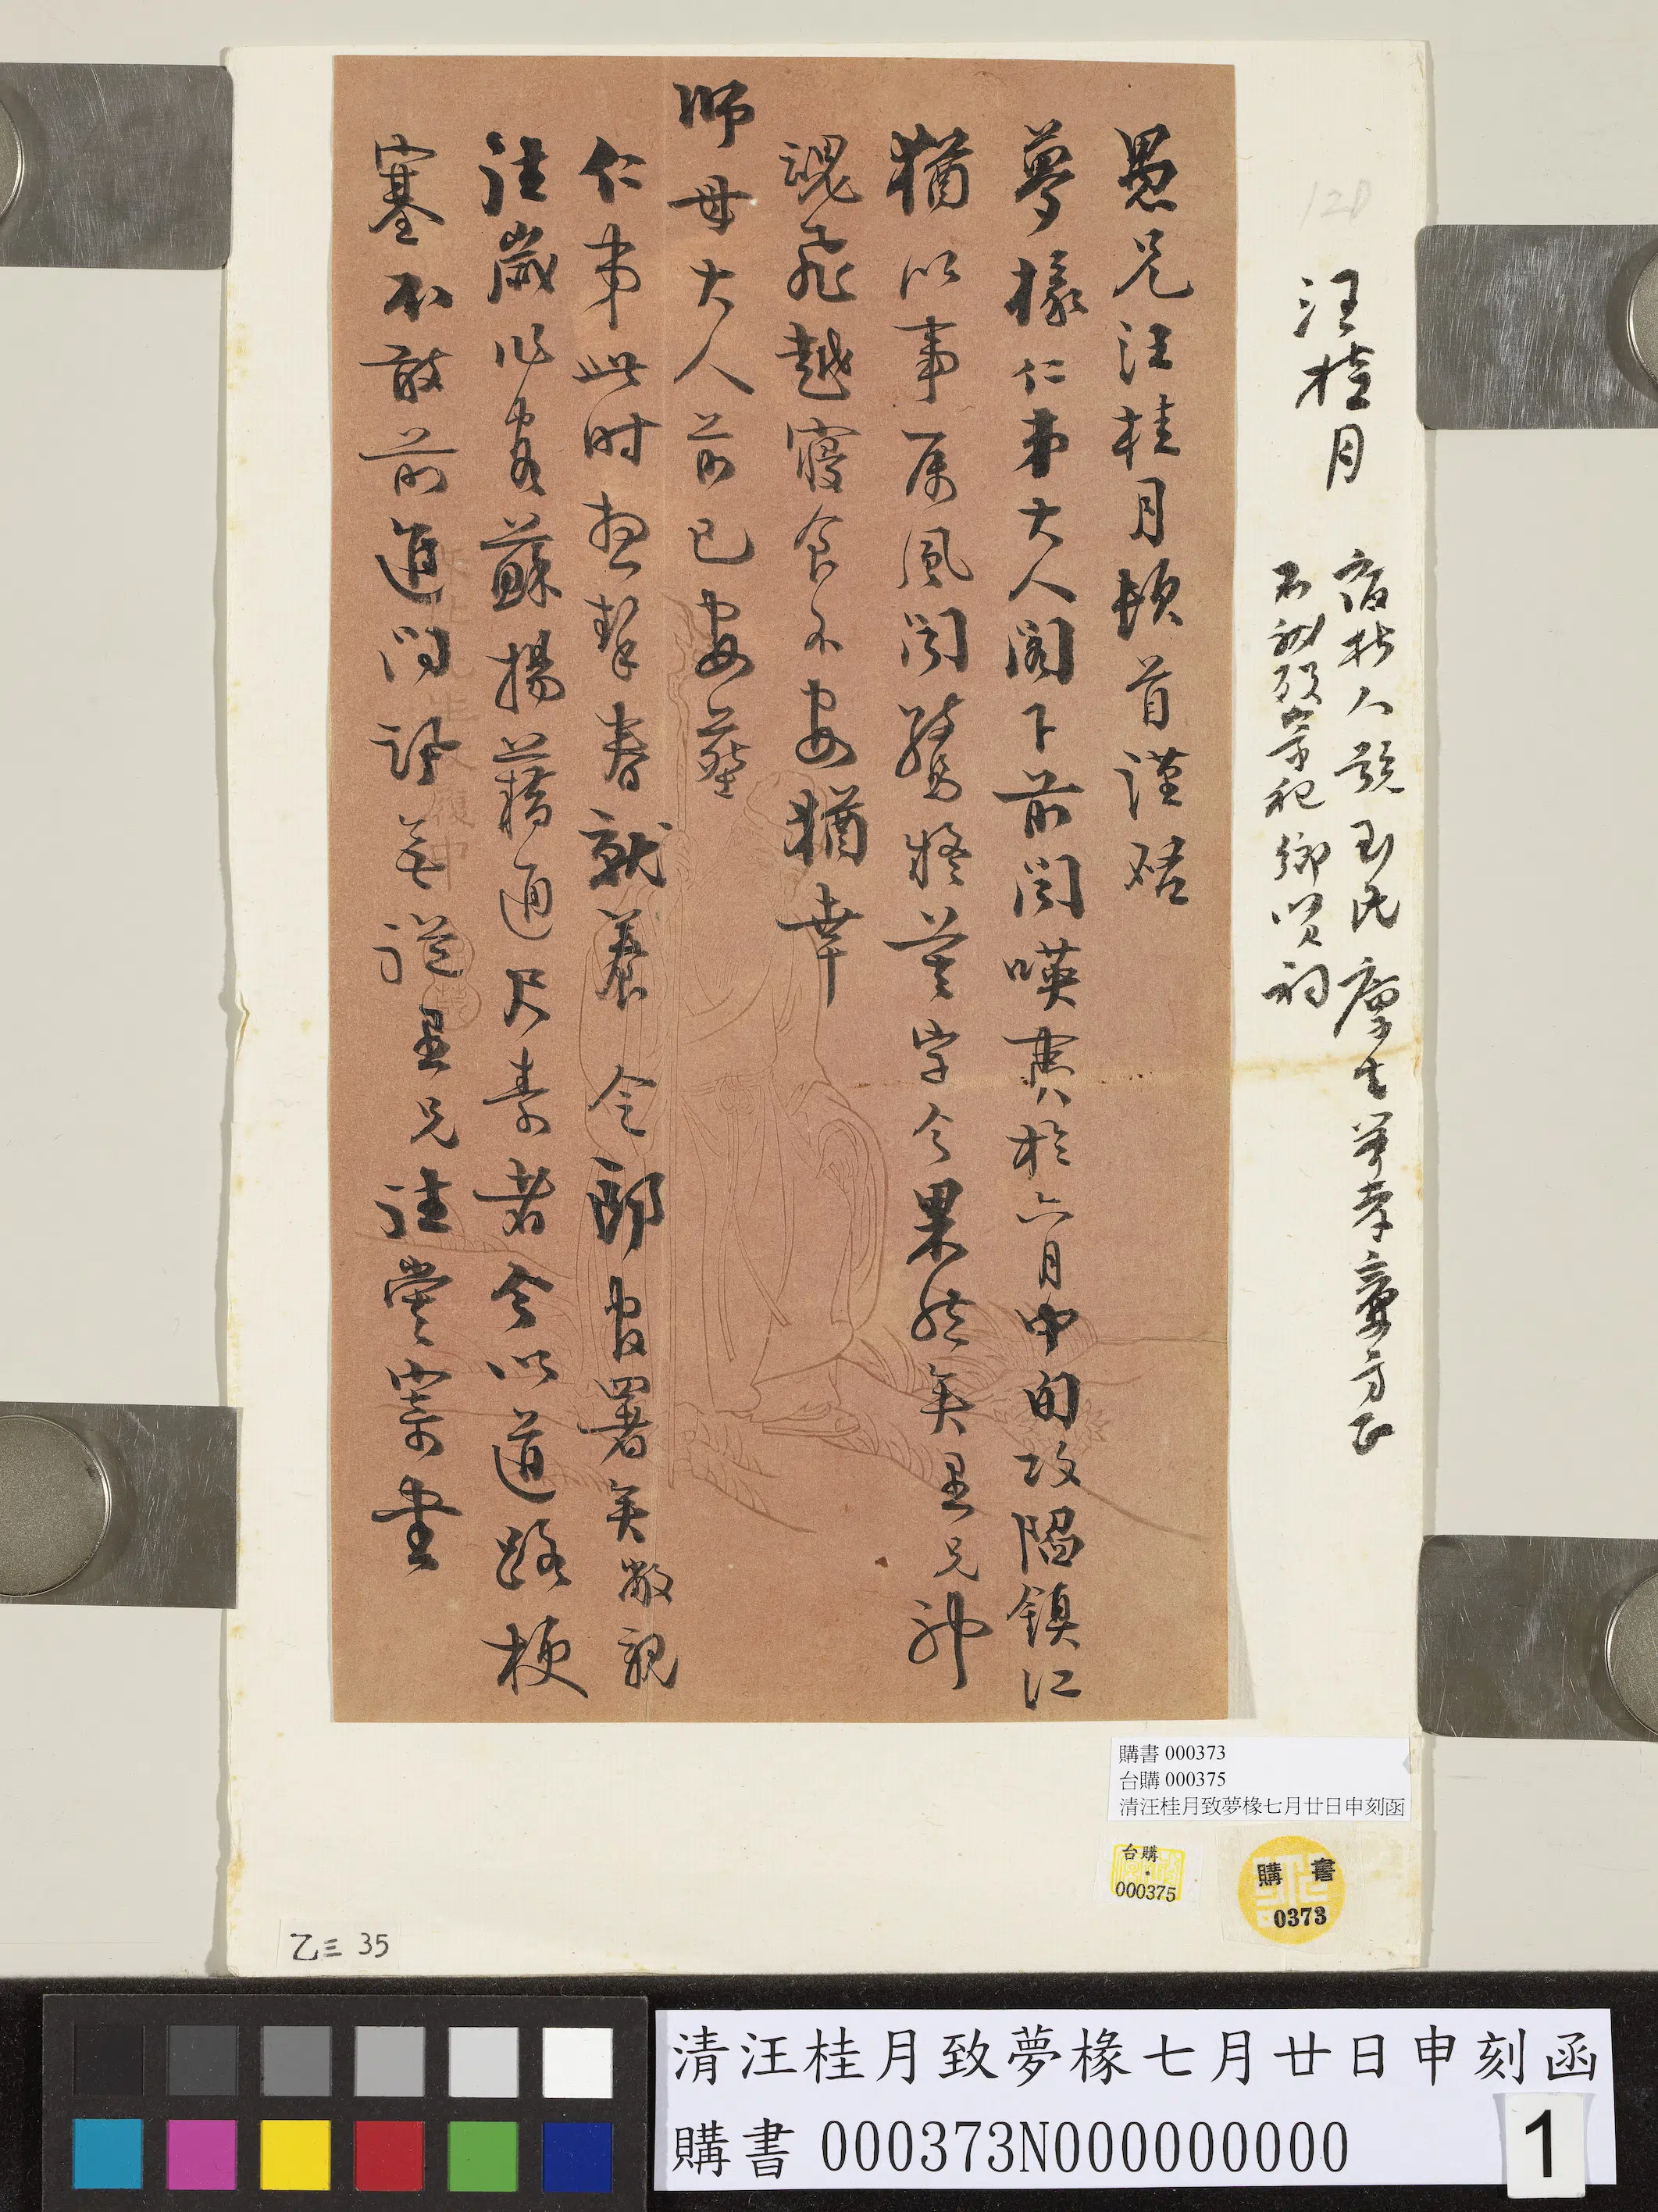 汪桂月
宿松人號玉民廩生舉孝廉方正
不就歿崇祀鄉賢祠
愚兄汪桂月頓首謹啟
夢椽仁弟大人閣下前聞㗸夷於六月中旬攻陷鎮江
猶以事属風聞驚疑莫定今果然矣愚兄神
魂飛越寢食不安猶幸
師母大人前已安葬
仁弟此時想挈眷就養令郎官署矣敝親
往歲作客蘇揚藉通尺素者今以道路梗
塞不敢前進問訊無從愚兄往嘗寄書
購書 000373
台購 000375
清汪桂月致夢椽七月廿日申刻函
台購
000375
購書
0373
乙三 35
清汪桂月致夢椽七月廿日申刻函
購書 000373N000000000
1